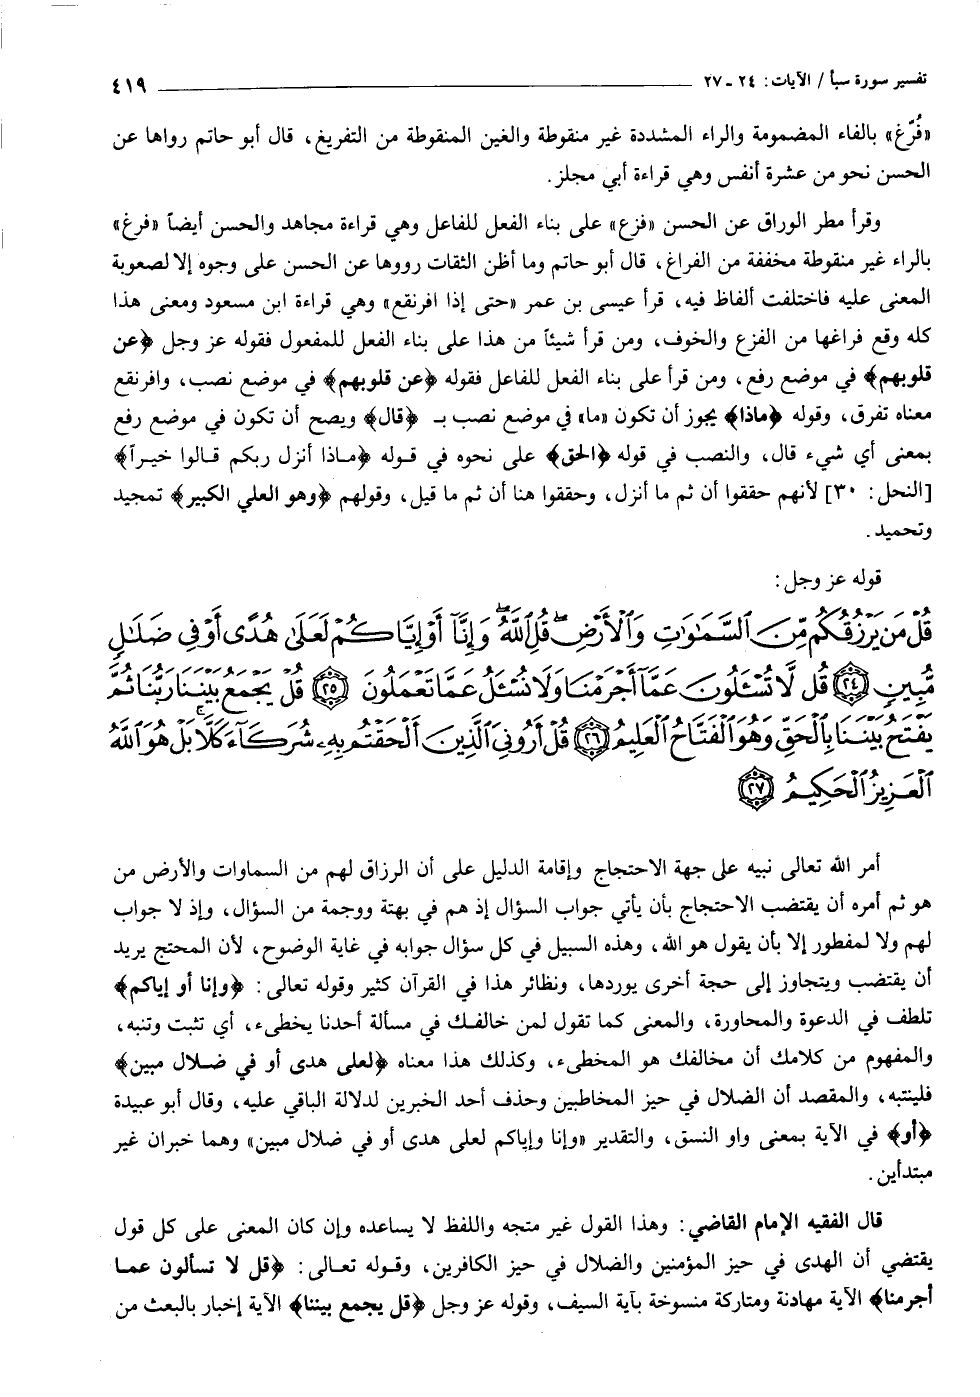 تفسير سورة سبأ / الآيات: ٢٤ - ٢٧ ٤١٩
«فُرّغ» بالفاء المضمومة والراء المشددة غير منقوطة والغين المنقوطة من التفريغ، قال أبو حاتم رواها عن
الحسن نحو من عشرة أنفس وهي قراءة أبي مجلز.
وقرأ مطر الوراق عن الحسن «فزع» على بناء الفعل للفاعل وهي قراءة مجاهد والحسن أيضاً «فرغ»
بالراء غير منقوطة مخففة من الفراغ، قال أبو حاتم وما أظن الثقات رووها عن الحسن على وجوه إلا لصعوبة
المعنى عليه فاختلفت ألفاظ فيه، قرأ عيسى بن عمر «حتى إذا افرنقع» وهي قراءة ابن مسعود ومعنى هذا
كله وقع فراغها من الفزع والخوف، ومن قرأ شيئاً من هذا على بناء الفعل للمفعول فقوله عز وجل ﴿عن
قلوبهم﴾ في موضع رفع، ومن قرأ على بناء الفعل للفاعل فقوله ﴿عن قلوبهم﴾ في موضع نصب، وافرنقع
معناه تفرق، وقوله ﴿ماذا﴾ يجوز أن تكون «ما» في موضع نصب بـ ﴿قال﴾ ويصح أن تكون في موضع رفع
بمعنى أي شيء قال، والنصب في قوله ﴿الحق﴾ على نحوه في قوله ﴿ماذا أنزل ربكم قالوا خيراً﴾
[النحل: ٣٠] لأنهم حققوا أن ثم ما أنزل، وحققوا هنا أن ثم ما قيل، وقولهم ﴿وهو العلي الكبير﴾ تمجيد
وتحميد.
قوله عز وجل:
قُلْ مَن يَرْزُقُكُم مِّنَ ٱلسَّمَٰوَٰتِ وَٱلْأَرْضِ ۖ قُلِ ٱللَّهُ ۖ وَإِنَّآ أَوْ إِيَّاكُمْ لَعَلَىٰ هُدًى أَوْ فِى ضَلَٰلٍ
مُّبِينٍ ٢٤ قُل لَّا تُسْـَٔلُونَ عَمَّآ أَجْرَمْنَا وَلَا نُسْـَٔلُ عَمَّا تَعْمَلُونَ ٢٥ قُلْ يَجْمَعُ بَيْنَنَا رَبُّنَا ثُمَّ
يَفْتَحُ بَيْنَنَا بِٱلْحَقِّ وَهُوَ ٱلْفَتَّاحُ ٱلْعَلِيمُ ٢٦ قُلْ أَرُونِىَ ٱلَّذِينَ أَلْحَقْتُم بِهِۦ شُرَكَآءَ ۖ كَلَّا ۚ بَلْ هُوَ ٱللَّهُ
ٱلْعَزِيزُ ٱلْحَكِيمُ ٢٧
أمر الله تعالى نبيه على جهة الاحتجاج وإقامة الدليل على أن الرزاق لهم من السماوات والأرض من
هو ثم أمره أن يقتضب الاحتجاج بأن يأتي جواب السؤال إذ هم في بهتة ووجمة من السؤال، وإذ لا جواب
لهم ولا لمفطور إلا بأن يقول هو الله، وهذه السبيل في كل سؤال جوابه في غاية الوضوح، لأن المحتج يريد
أن يقتضب ويتجاوز إلى حجة أخرى يوردها، ونظائر هذا في القرآن كثير وقوله تعالى: ﴿وإنا أو إياكم﴾
تلطف في الدعوة والمحاورة، والمعنى كما تقول لمن خالفك في مسألة أحدنا يخطىء، أي تثبت وتنبه،
والمفهوم من كلامك أن مخالفك هو المخطىء، وكذلك هذا معناه ﴿لعلى هدى أو في ضلال مبين﴾
فلينتبه، والمقصد أن الضلال في حيز المخاطبين وحذف أحد الخبرين لدلالة الباقي عليه، وقال أبو عبيدة
﴿أو﴾ في الآية بمعنى واو النسق، والتقدير «وإنا وإياكم لعلى هدى أو في ضلال مبين» وهما خبران غير
مبتدأين.
قال الفقيه الإمام القاضي: وهذا القول غير متجه واللفظ لا يساعده وإن كان المعنى على كل قول
يقتضي أن الهدى في حيز المؤمنين والضلال في حيز الكافرين، وقوله تعالى: ﴿قل لا تسألون عما
أجرمنا﴾ الآية مهادنة ومتاركة منسوخة بآية السيف، وقوله عز وجل ﴿قل يجمع بيننا﴾ الآية إخبار بالبعث من